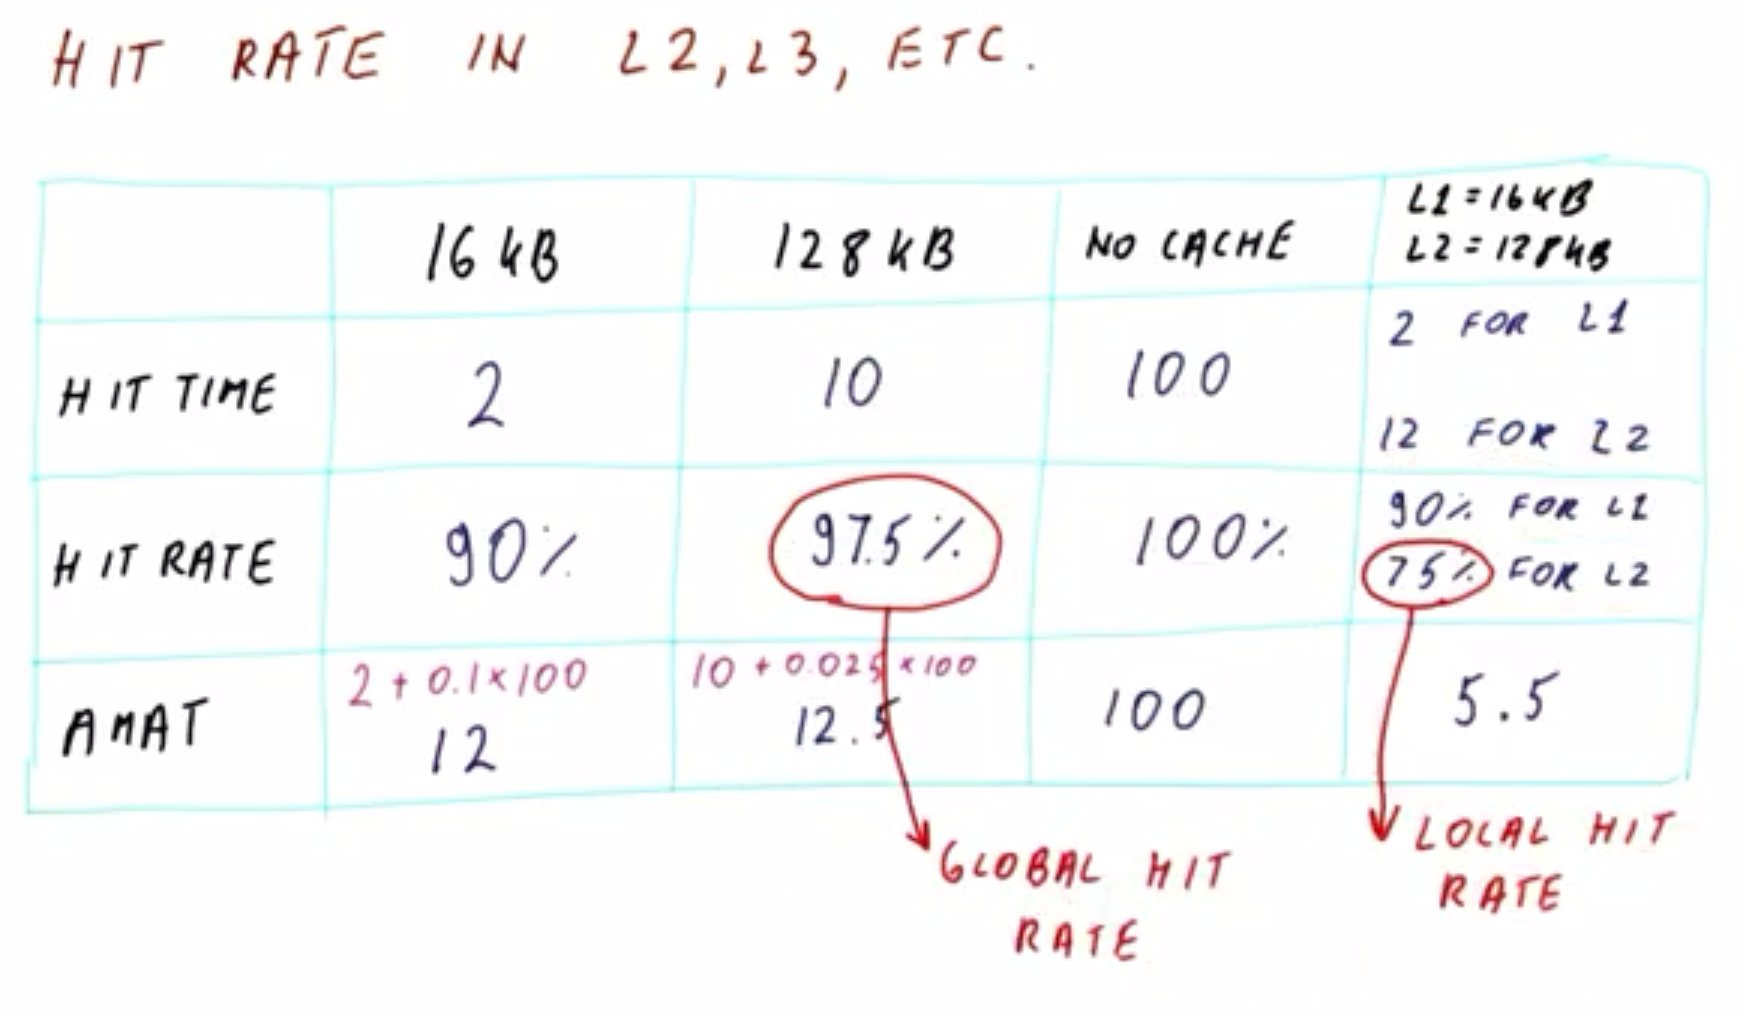 HIT RATE IN L2, L3, ETC.
16 kB
128 kB
NO CACHE
L1 = 16 kB
L2 = 128 kB
HIT TIME
2
10
100
2 FOR L1
12 FOR L2
HIT RATE
90%
97.5%
100%
90% FOR L1
75% FOR L2
AMAT
2 + 0.1 × 100
12
10 + 0.025 × 100
12.5
100
5.5
GLOBAL HIT
RATE
LOCAL HIT
RATE